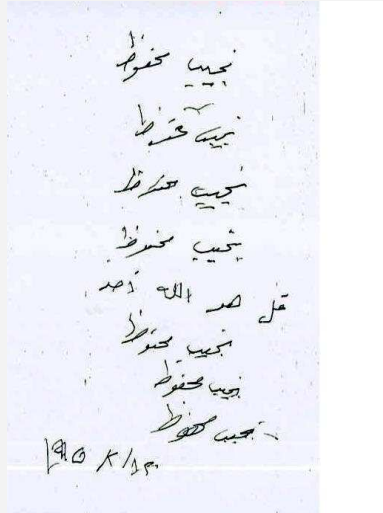 نجيب محفوظ
نجيب محفوظ
نجيب محفوظ
نجيب محفوظ
قل هو الله أحد
نجيب محفوظ
نجيب محفوظ
نجيب محفوظ